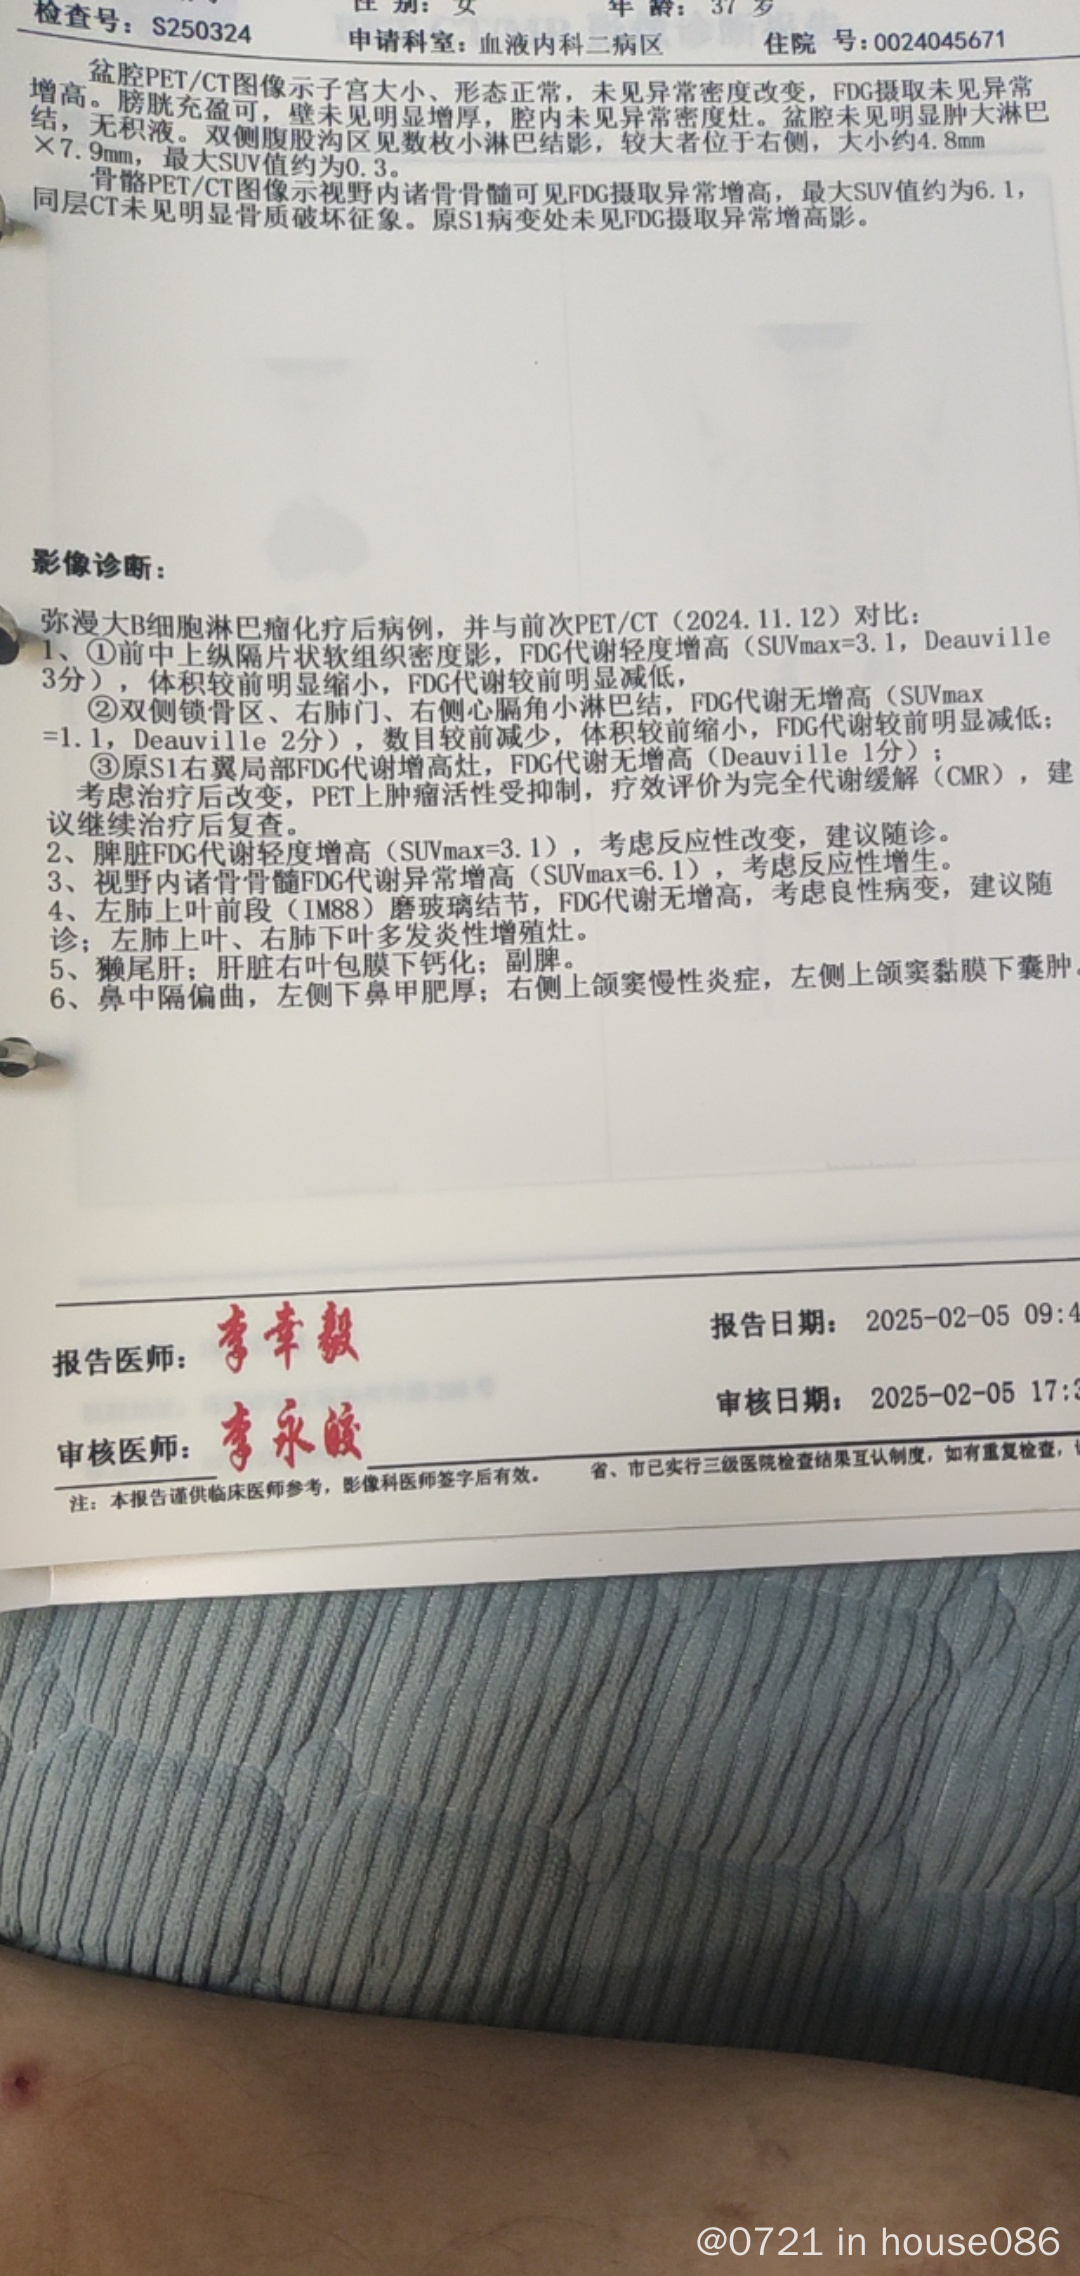 检查号：S250324
性 别：女
年 龄：37 岁
申请科室：血液内科二病区
住院 号：0024045671
盆腔PET/CT图像示子宫大小、形态正常，未见异常密度改变，FDG摄取未见异常
增高。膀胱充盈可，壁未见明显增厚，腔内未见异常密度灶。盆腔未见明显肿大淋巴
结，无积液。双侧腹股沟区见数枚小淋巴结影，较大者位于右侧，大小约4.8mm
×7.9mm，最大SUV值约为0.3。
骨骼PET/CT图像示视野内诸骨骨髓可见FDG摄取异常增高，最大SUV值约为6.1，
同层CT未见明显骨质破坏征象。原S1病变处未见FDG摄取异常增高影。
影像诊断：
弥漫大B细胞淋巴瘤化疗后病例，并与前次PET/CT（2024.11.12）对比：
1、①前中上纵隔片状软组织密度影，FDG代谢轻度增高（SUVmax=3.1，Deauville
3分），体积较前明显缩小，FDG代谢较前明显减低，
②双侧锁骨区、右肺门、右侧心膈角小淋巴结，FDG代谢无增高（SUVmax
=1.1，Deauville 2分），数目较前减少，体积较前缩小，FDG代谢较前明显减低；
③原S1右翼局部FDG代谢增高灶，FDG代谢无增高（Deauville 1分）；
考虑治疗后改变，PET上肿瘤活性受抑制，疗效评价为完全代谢缓解（CMR），建
议继续治疗后复查。
2、脾脏FDG代谢轻度增高（SUVmax=3.1），考虑反应性改变，建议随诊。
3、视野内诸骨骨髓FDG代谢异常增高（SUVmax=6.1），考虑反应性增生。
4、左肺上叶前段（IM88）磨玻璃结节，FDG代谢无增高，考虑良性病变，建议随
诊；左肺上叶、右肺下叶多发炎性增殖灶。
5、獭尾肝；肝脏右叶包膜下钙化；副脾。
6、鼻中隔偏曲，左侧下鼻甲肥厚；右侧上颌窦慢性炎症，左侧上颌窦黏膜下囊肿。
报告医师：李幸毅
报告日期： 2025-02-05 09:4
审核医师：李永皎
审核日期： 2025-02-05 17:3
注：本报告谨供临床医师参考，影像科医师签字后有效。
省、市已实行三级医院检查结果互认制度，如有重复检查，
@0721 in house086